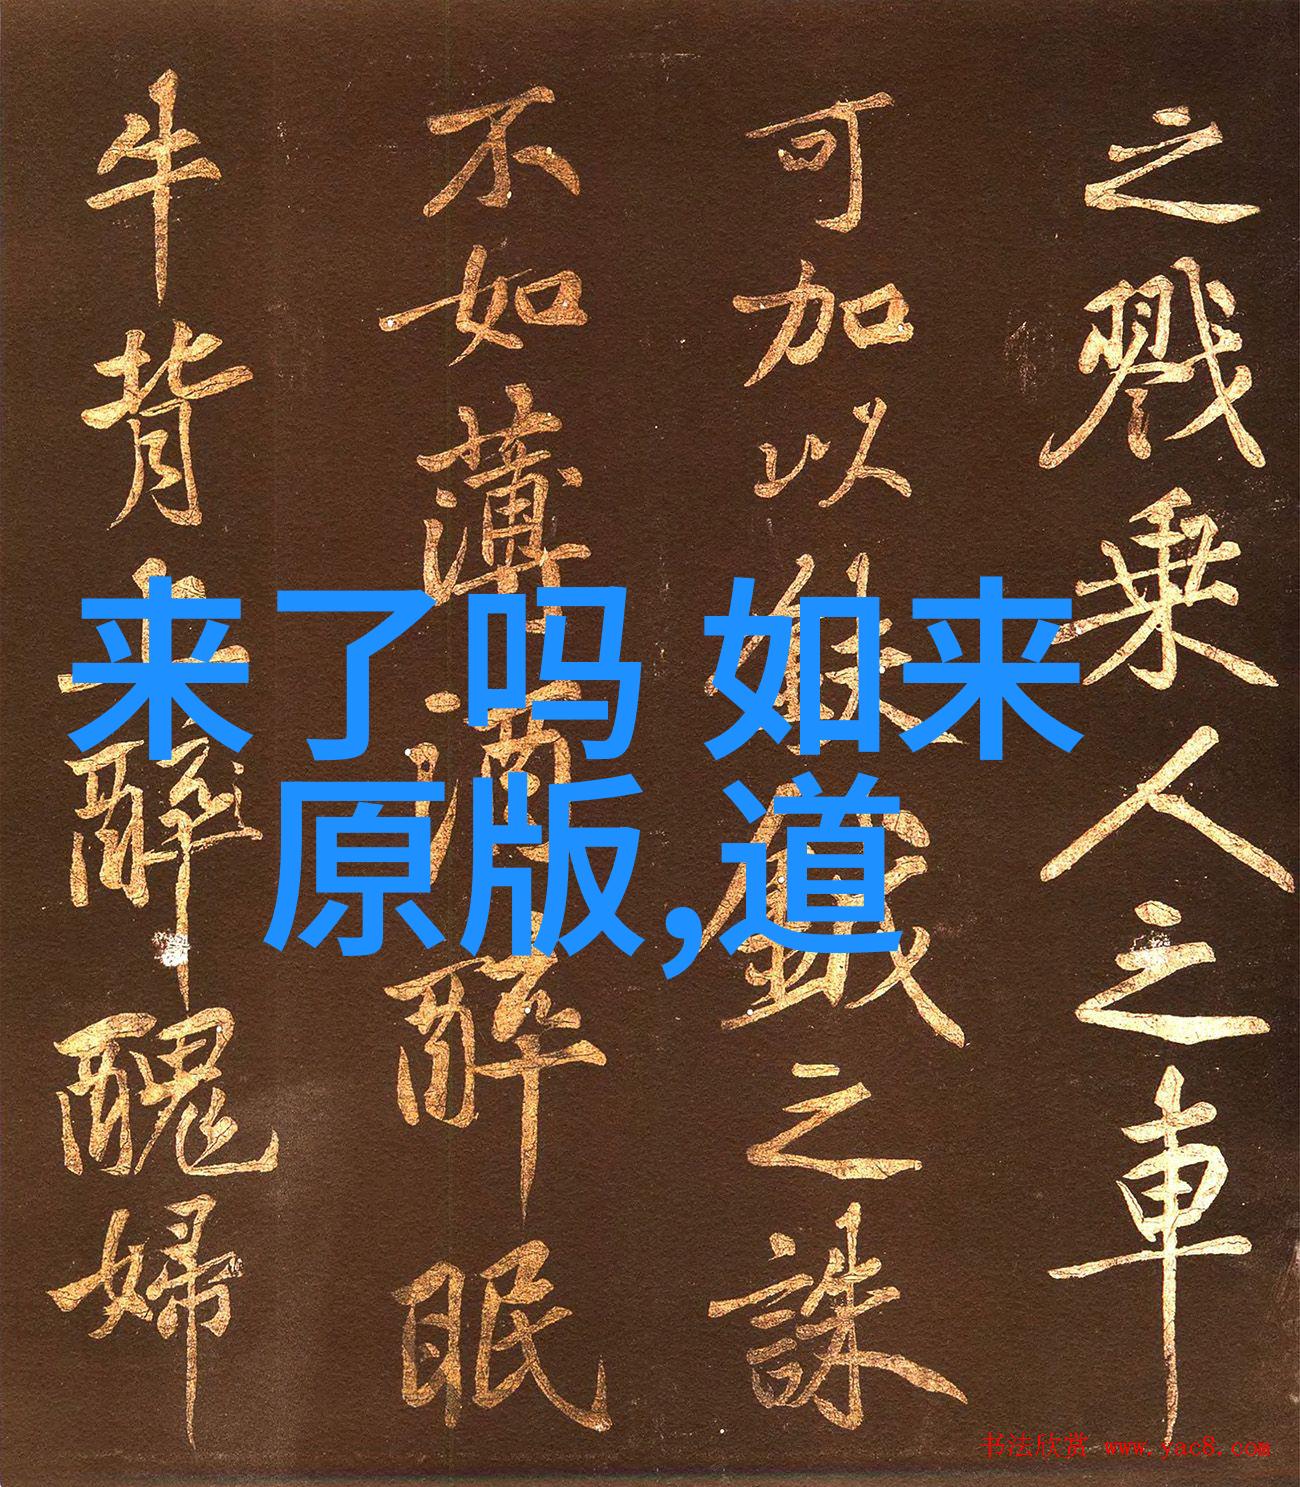 来了吗 如来
原版,道
之戮乘人之車
可加以鉞之誅
不如薄酒醉眠
牛背上醉醜婦
书法欣赏 www.yac8.com